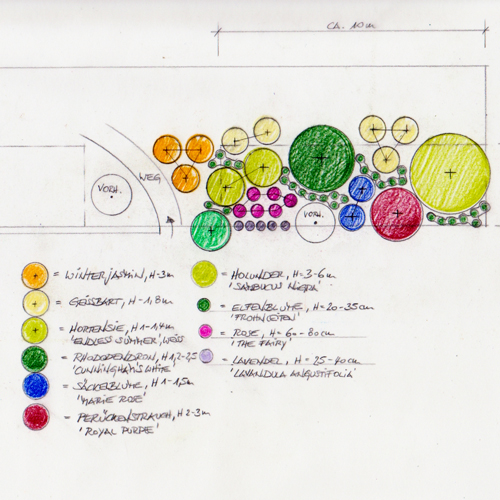 ca. 10m
WEG
VORH.
VORH.
= WINTERJASMIN, H-3m
= GEISSBART, H-1,8m
= HORTENSIE, H 1-1,4m
'ENDLESS SUMMER', WEISS
= RHODODENDRON, H 1,2-2,5
'CUNNINGHAM'S WHITE'
= SÄCKELBLUME, H 1-1,5m
'MARIE ROSE'
= PERÜCKENSTRAUCH, H 2-3m
'ROYAL PURPLE'
= HOLUNDER, H=3-6m
'SAMBUCUS NIGRA'
= ELFENBLUME, H=20-35cm
'FROHNLEITEN'
= ROSE, H= 60-80cm
'THE FAIRY'
= LAVENDEL, H = 25-40cm
'LAVANDULA ANGUSTIFOLIA'